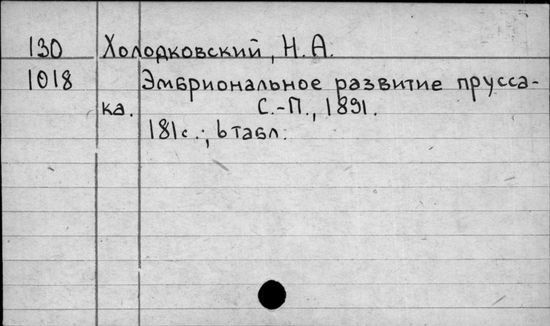 130 Холодковский, Н.А.
1018 Эмбриональное развитие прусса-
ка. С.-П., 1891.
181с.; 6 табл.